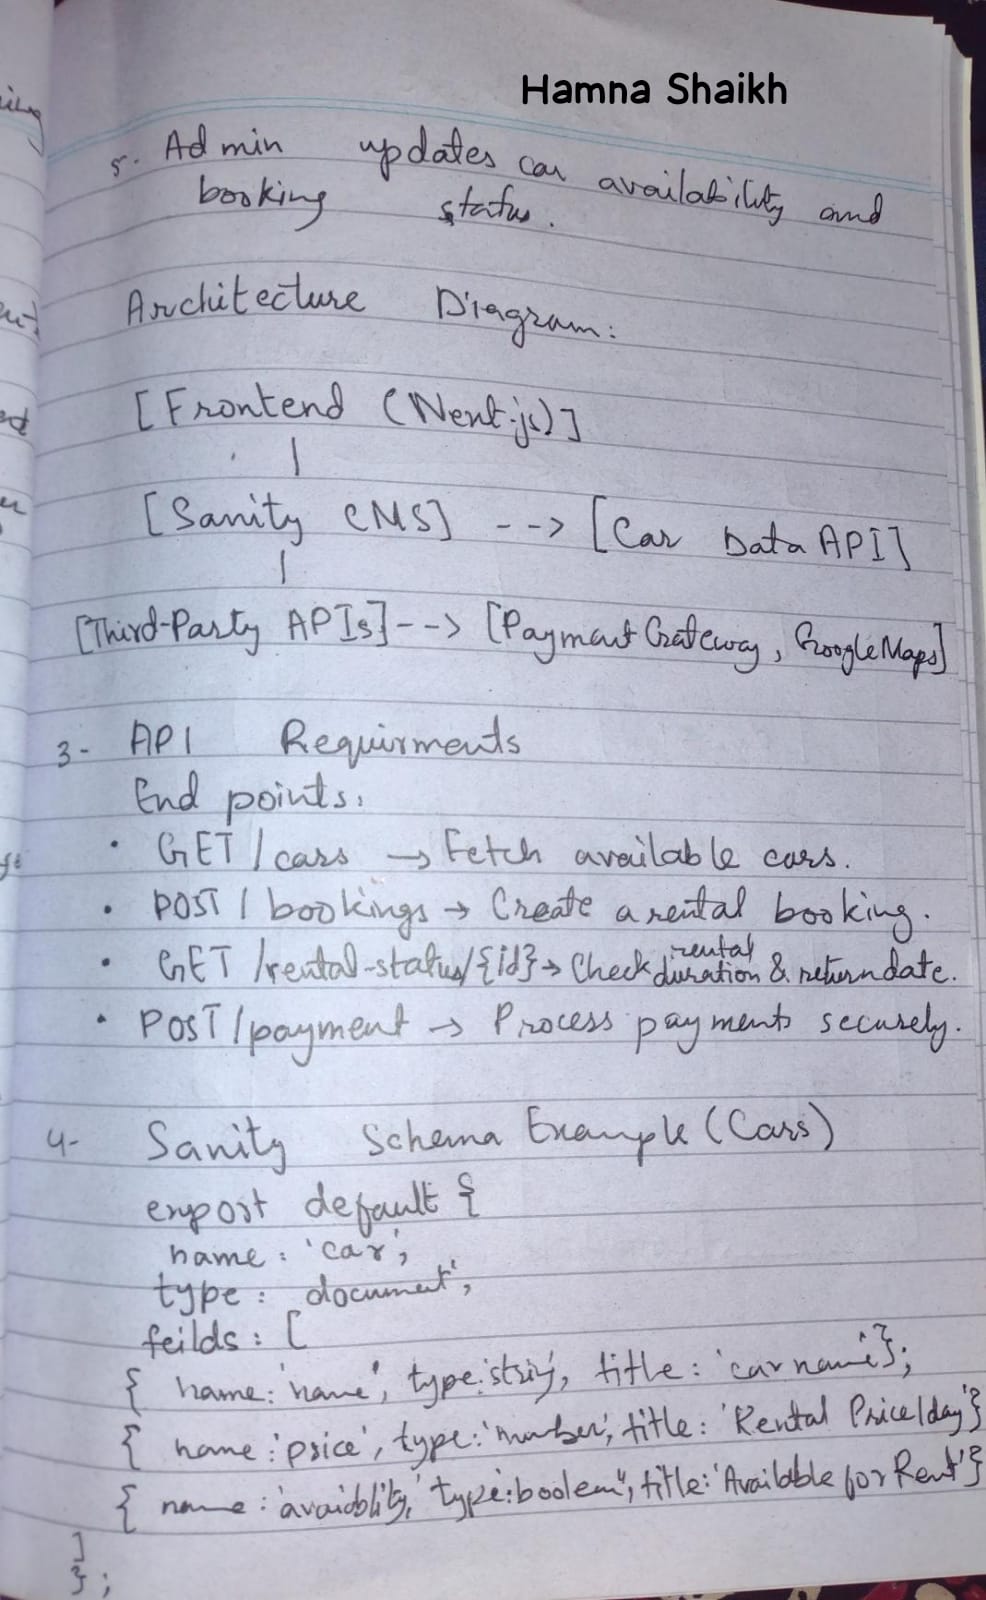 Hamna Shaikh
5. Admin updates car availability and
booking status.
Architecture Diagram:
[Frontend (Next.js)]
|
[Sanity CMS] --> [Car Data API]
|
[Third-Party APIs]--> [Payment Gateway, Google Maps]
3- API Requirments
End points:
• GET /cars → Fetch available cars.
• POST / bookings → Create a rental booking.
• GET /rental-status/{id}→ Check rental duration & return date.
• POST /payment → Process payments securely.
4- Sanity Schema Example (Cars)
export default {
name: 'car',
type: document',
feilds: [
{ name: 'name', type:'string', title: 'car name'};
{ name:'price', type:'number', title: 'Rental Price/day'}
{ name: 'avaidblity,' type:boolean", title:'Available for Rent'}
]
};